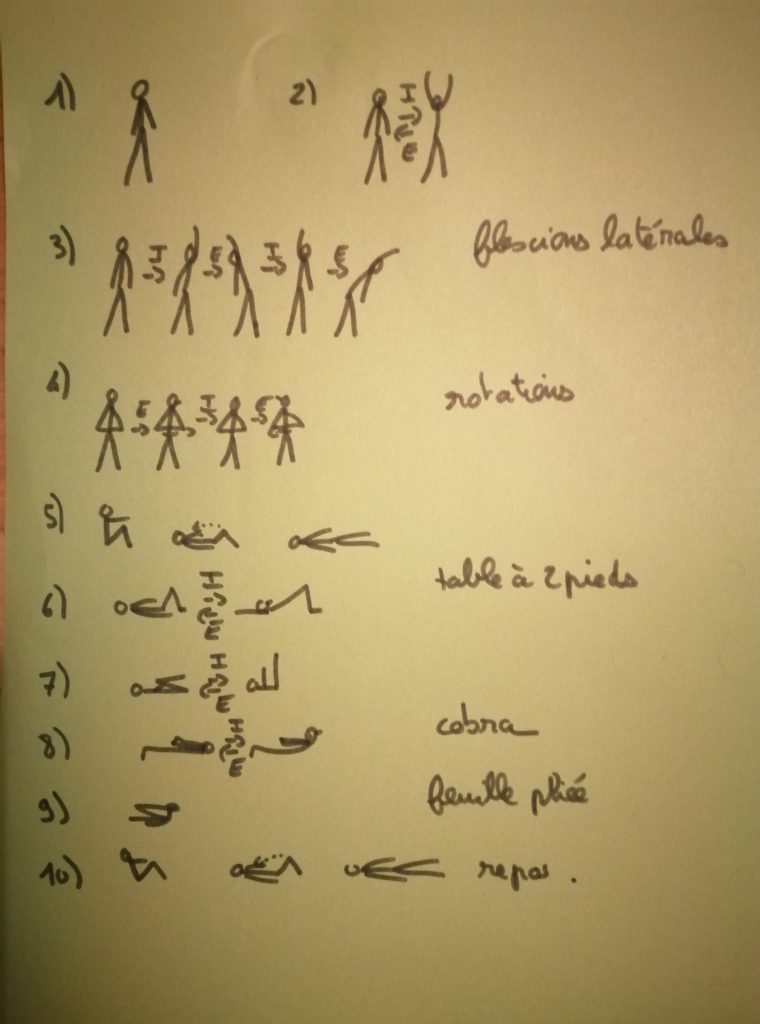 1) 2)
I
E
3) I E I E flescions latérales
4) E I E rotations
5)
table à 2 pieds
6) I
E
7) I
E
8) I cobra
E
9) feuille pliée
10) repos .